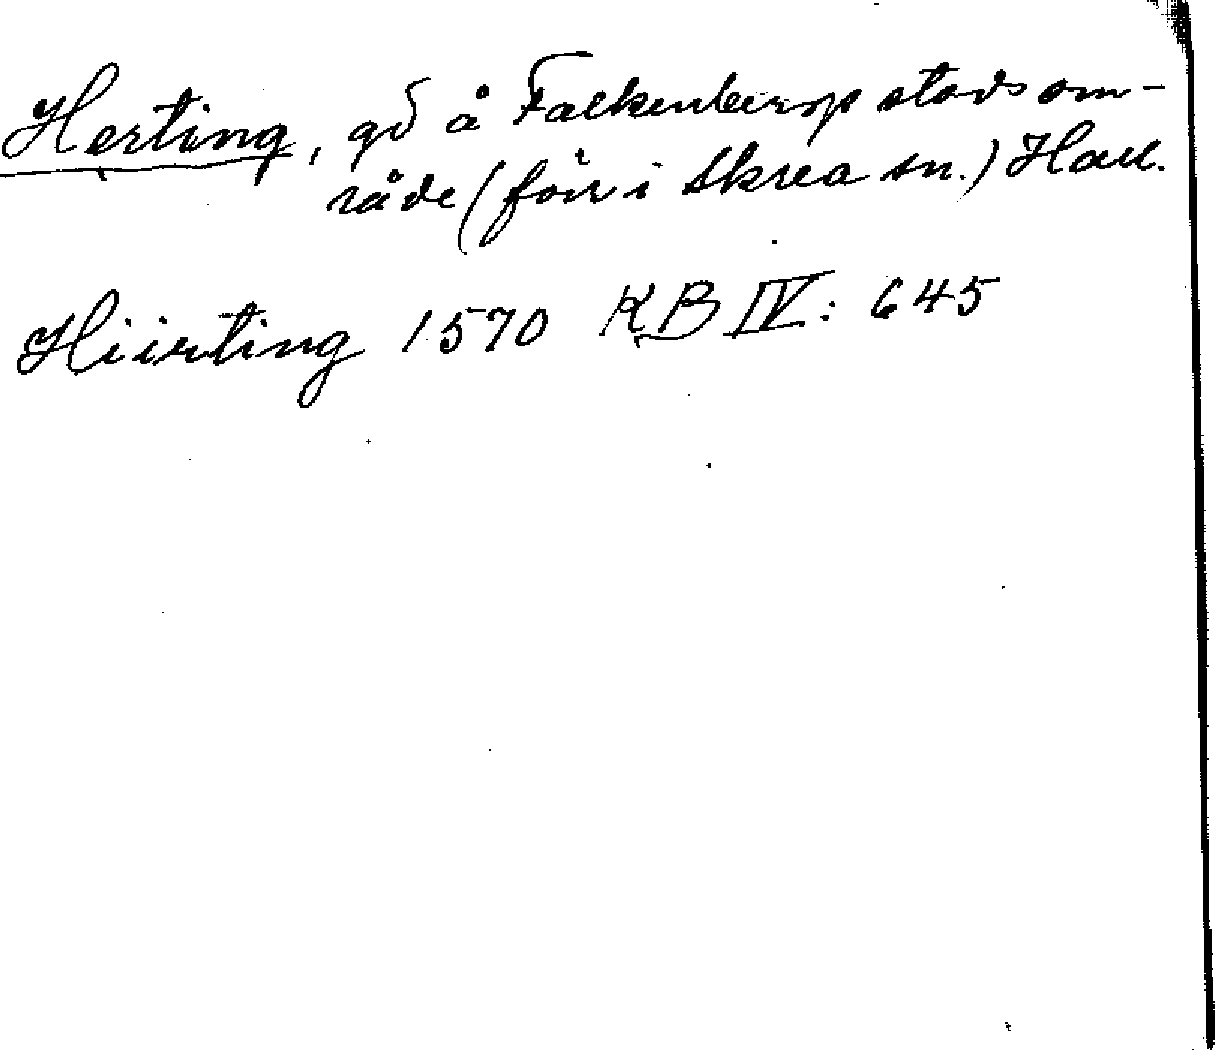 Herting, gd å Falkenbergs stads om-
råde (förr i Skrea sn.) Hall.
Hiirting 1570 KB IV: 645